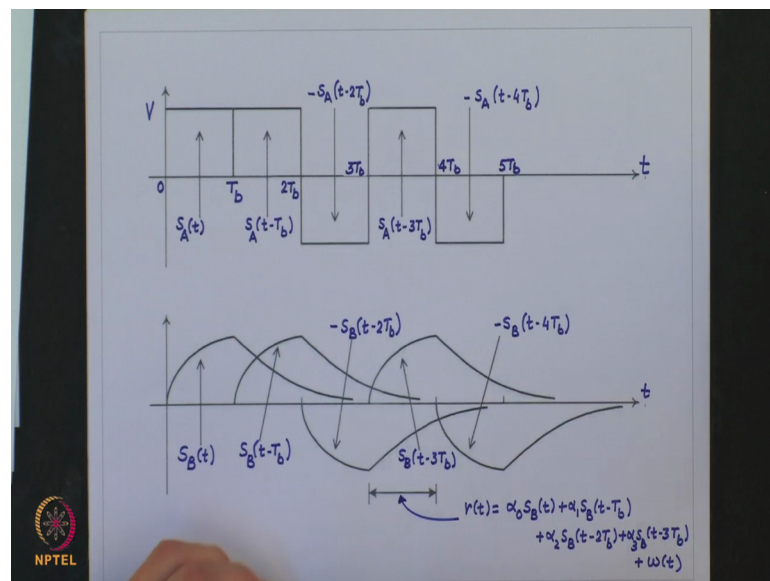 -S_A(t-2T_b)
-S_A(t-4T_b)
V
t
0
T_b
2T_b
3T_b
4T_b
5T_b
S_A(t)
S_A(t-T_b)
S_A(t-3T_b)
-S_B(t-2T_b)
-S_B(t-4T_b)
t
S_B(t)
S_B(t-T_b)
S_B(t-3T_b)
r(t)= α_0 S_B(t) + α_1 S_B(t-T_b)
+ α_2 S_B(t-2T_b) + α_3 S_B(t-3T_b)
+ ω(t)
NPTEL